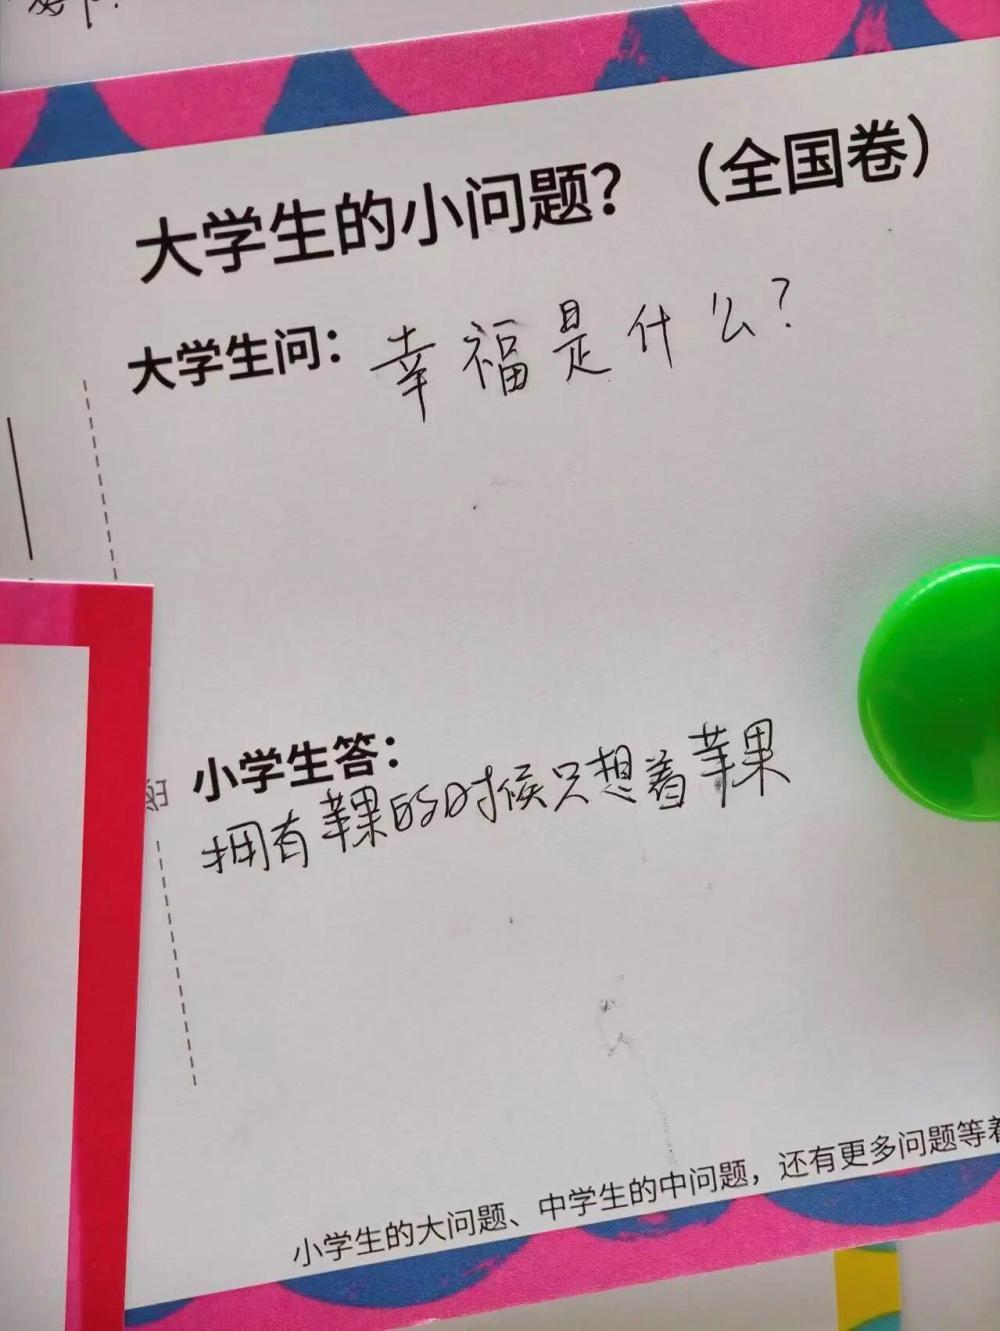 大学生的小问题？（全国卷）
大学生问：幸福是什么？
小学生答：
拥有苹果的时候只想着苹果
小学生的大问题、中学生的中问题，还有更多问题等着